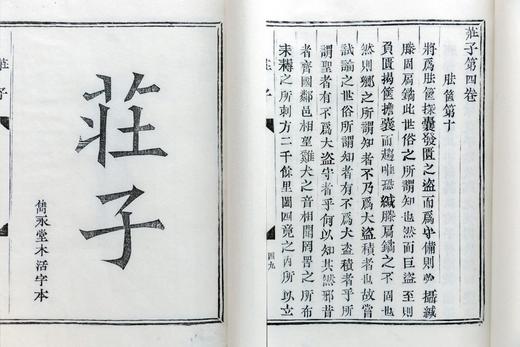 莊子
雋永堂木活字本
莊子
莊子第四卷
胠篋第十
將爲胠篋探囊發匱之盜而爲守備則必攝緘
縢固扃鐍此世俗之所謂知也然而巨盜至則
負匱揭篋擔囊而趨唯恐緘縢扃鐍之不固也
然則鄉之所謂知者不乃爲大盜積者也故嘗
試論之世俗所謂知者有不爲大盜積者乎所
謂聖者有不爲大盜守者乎何以知其然邪昔
者齊國鄰邑相望雞犬之音相聞罔罟之所布
耒耨之所刺方二千餘里闔四竟之內所以立
莊子
四九